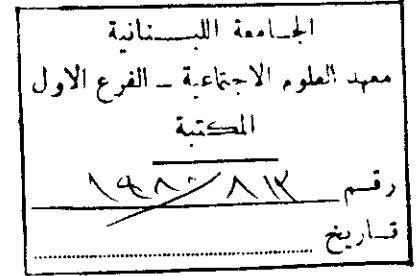 الجامعة اللبــنانية
معهد العلوم الاجتماعية – الفرع الاول
المكتبة
رقم
تاريخ